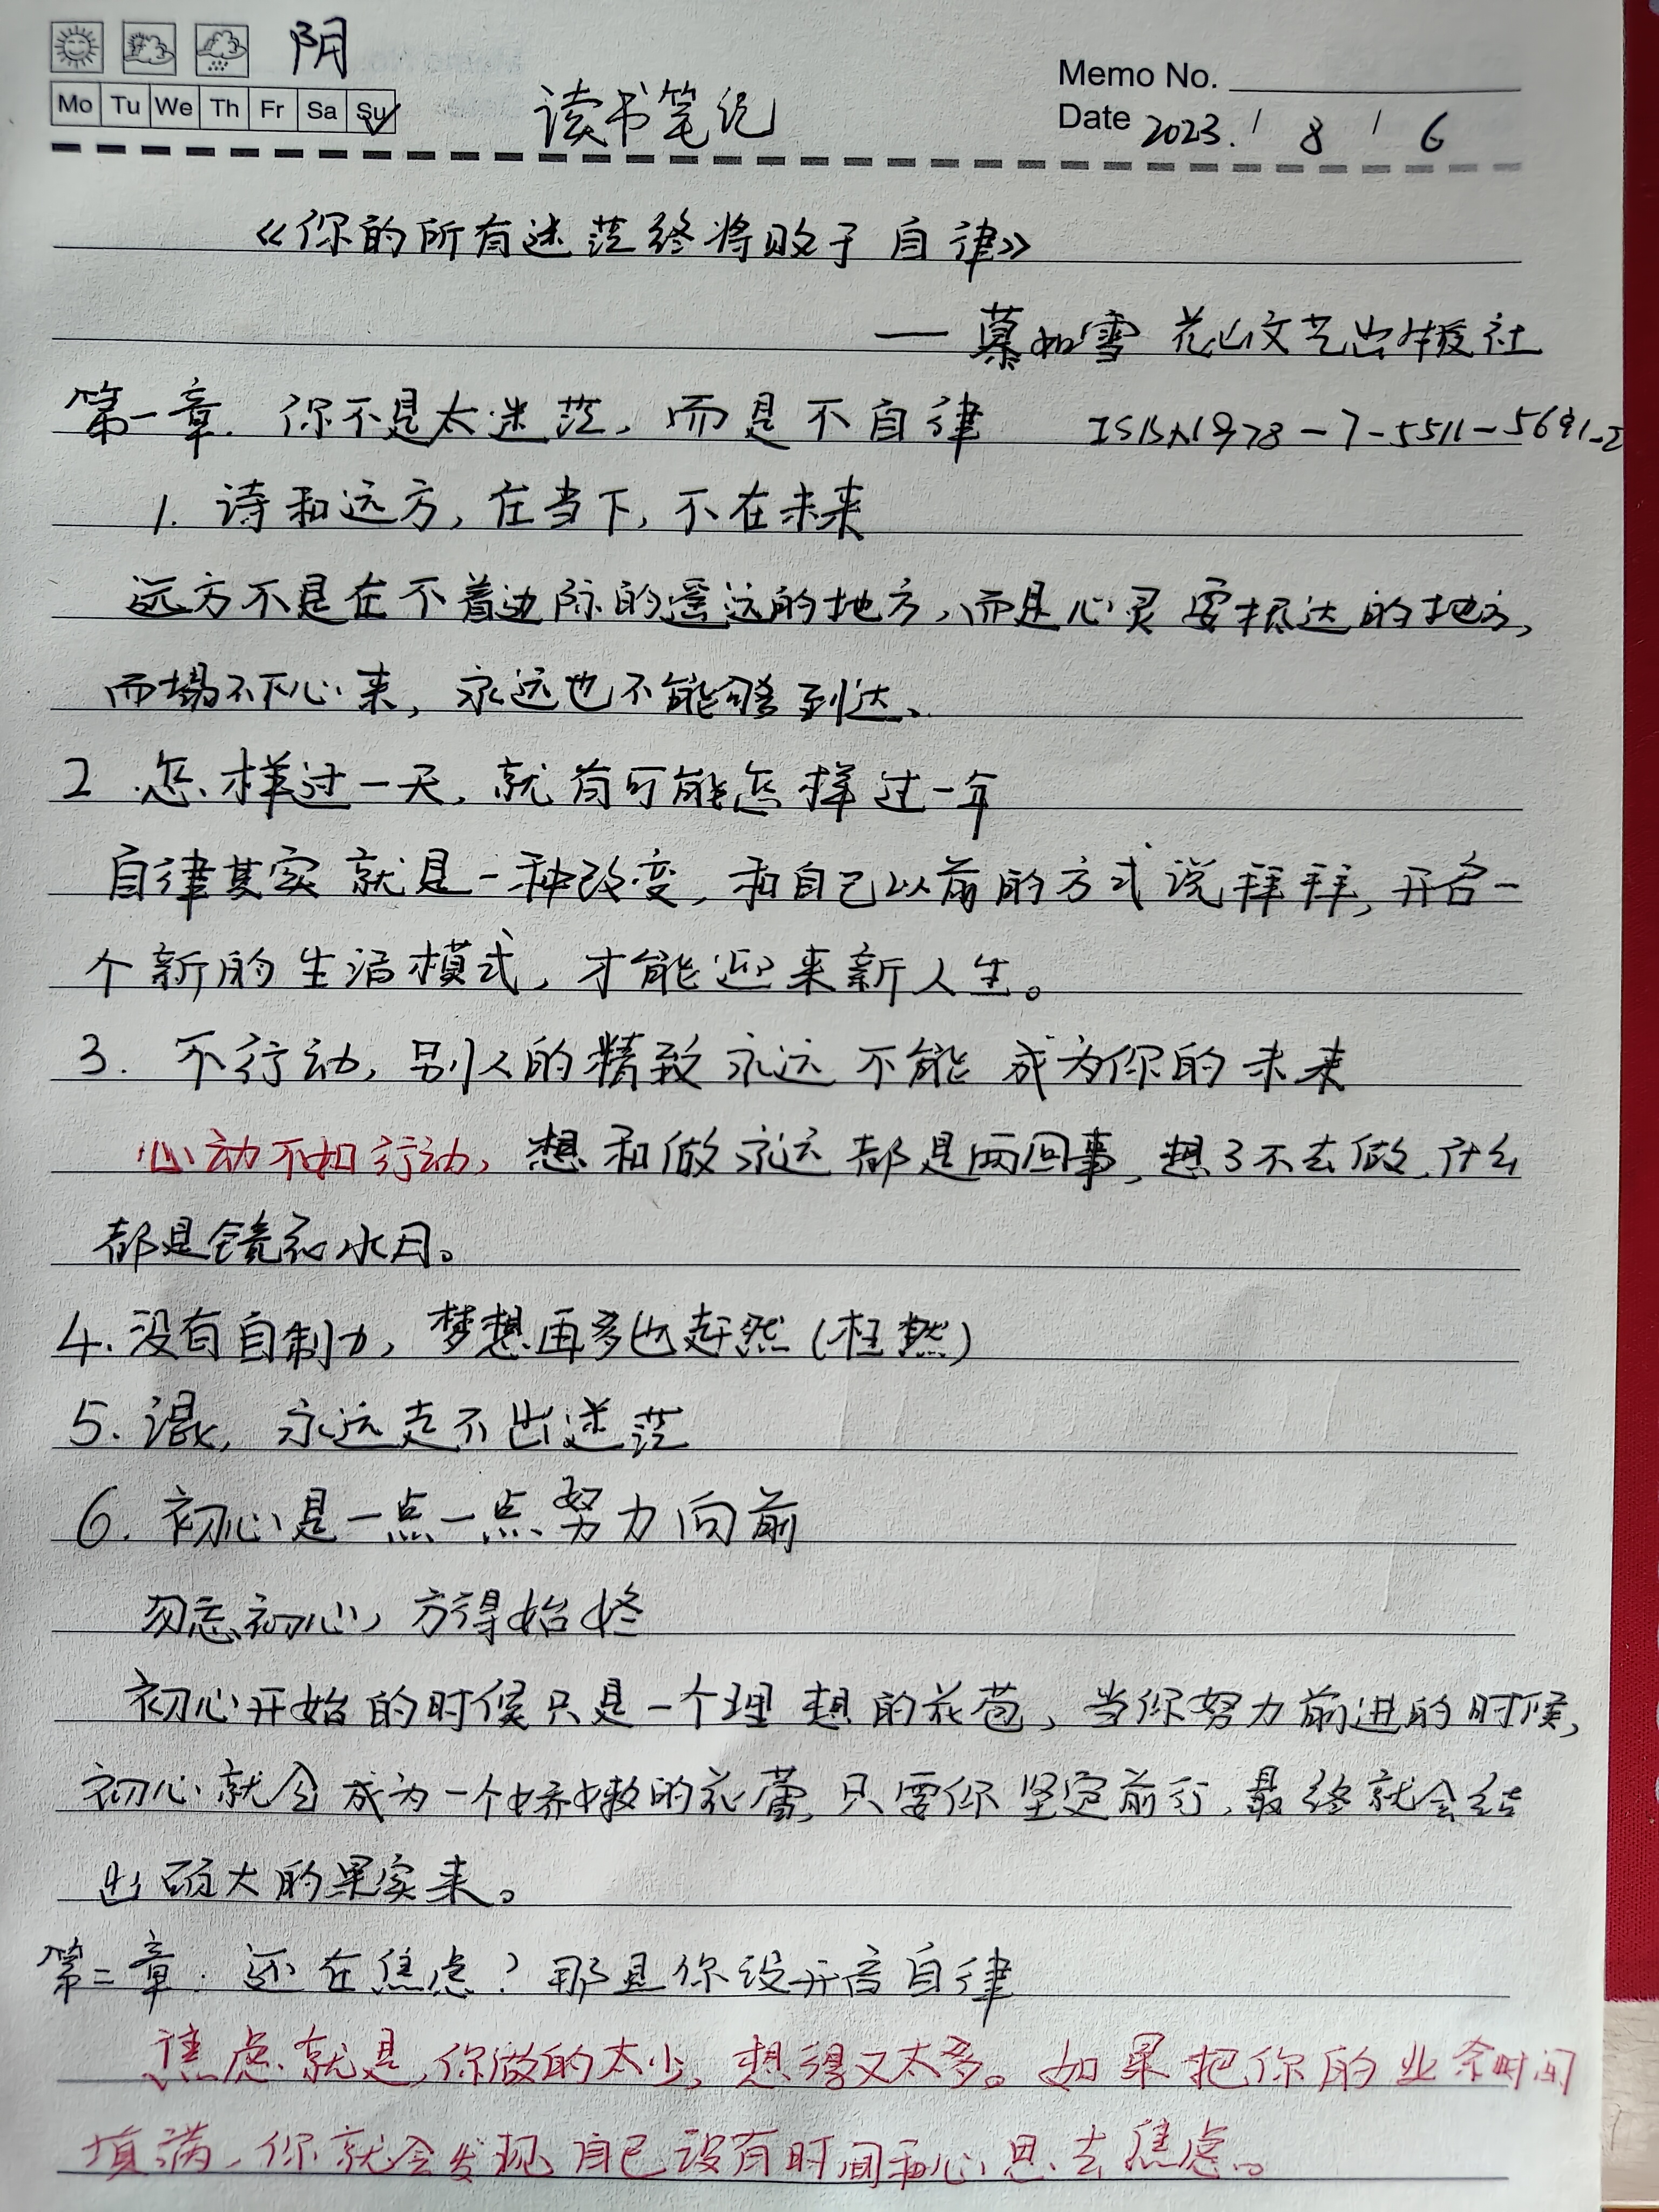 阴
Mo Tu We Th Fr Sa Su
读书笔记
Memo No.
Date 2023. / 8 / 6
《你的所有迷茫终将败于自律》
— 慕如雪 花山文艺出版社
第一章. 你不是太迷茫, 而是不自律 ISBN978-7-5511-5691-2
1. 诗和远方, 在当下, 不在未来
远方不是在不着边际的遥远的地方, 而是心灵要抵达的地方,
而塌不下心来, 永远也不能够到达.
2. 怎样过一天, 就有可能怎样过一年
自律其实就是一种改变, 和自己以前的方式说拜拜, 开启一
个新的生活模式, 才能迎来新人生。
3. 不行动, 别人的精致永远不能成为你的未来
心动不如行动, 想和做永远都是两回事, 想了不去做, 什么
都是镜花水月。
4. 没有自制力, 梦想再多也无然(枉然)
5. 混, 永远走不出迷茫
6. 初心是一点一点努力向前
勿忘初心, 方得始终
初心开始的时候只是一个理想的花苞, 当你努力前进的时候,
初心就会成为一个娇嫩的花蕾, 只要你坚定前行, 最终就会结
出硕大的果实来。
第二章. 还在焦虑? 那是你没开启自律
焦虑就是, 你做的太少, 想得又太多。如果把你的业余时间
填满, 你就会发现自己没有时间和心思去焦虑。